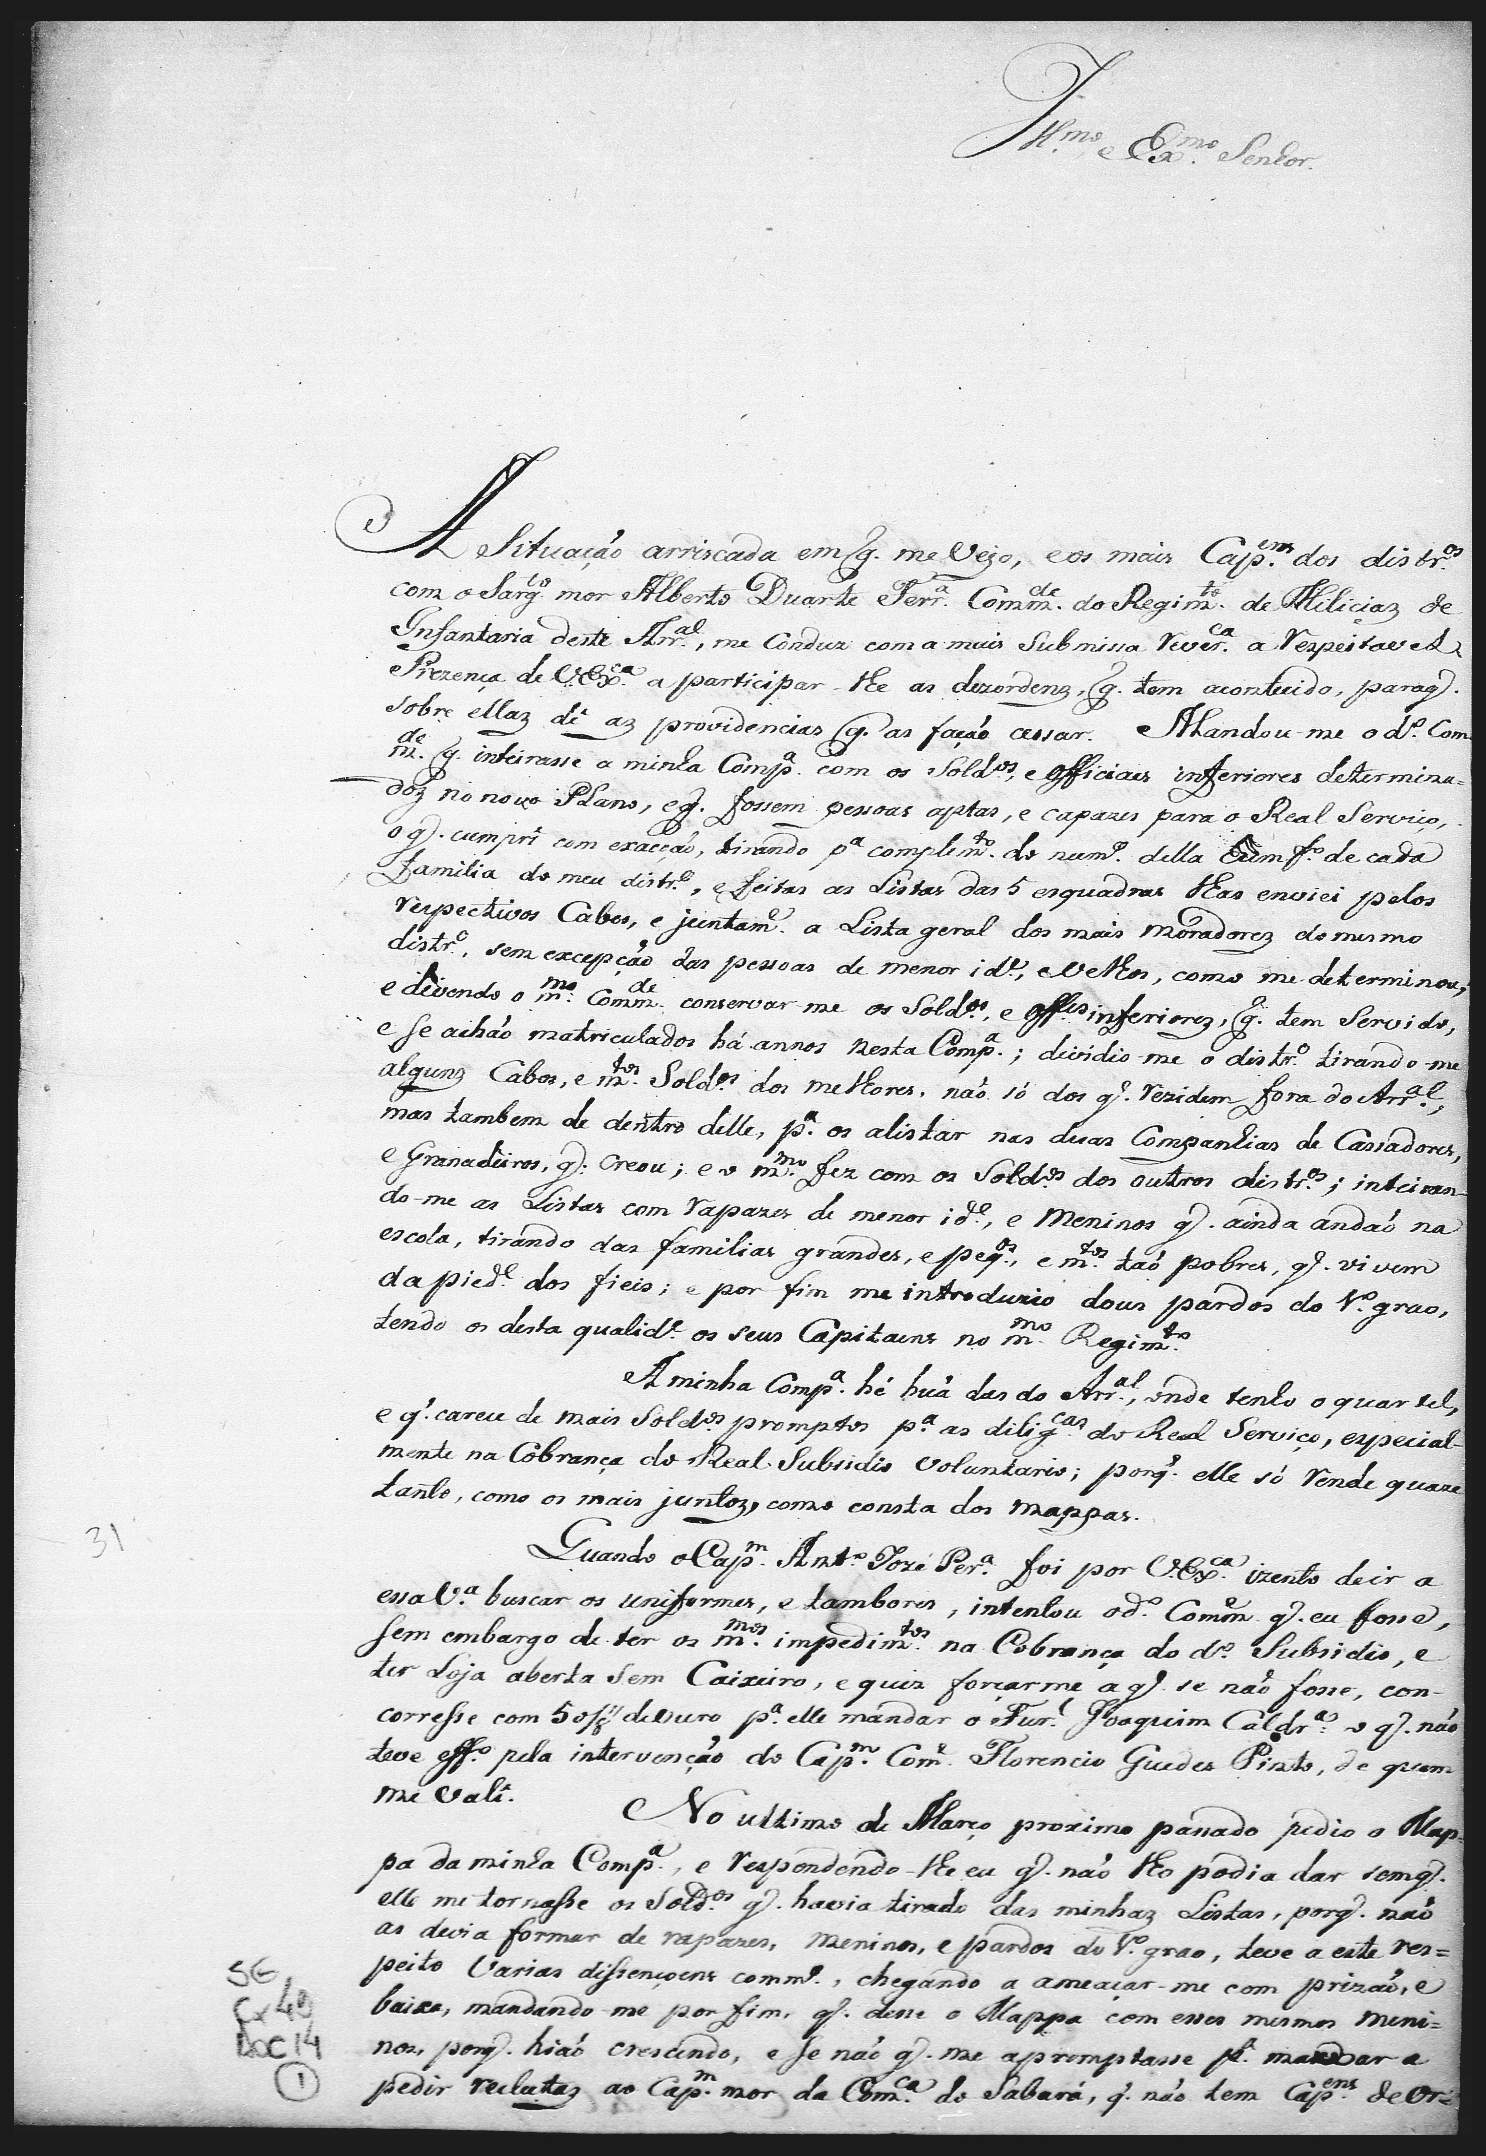 Ill.mo e Ex.mo Senhor.
A Situação arriscada em q. me vejo, e os mais Cap.ens dos distr.os
com o Sarg.to mor Alberto Duarte Ferr.a Comm.de do Regim.to de Milicias de
Infantaria deste Arr.al, me conduz com a mais submissa rever.ca a respeitavel
Prezença de V.Ex.ca a participar-lhe as dezordens, q. tem acontecido, paraq.
sobre ellas dê as providencias q. as fação cessar. Mandou-me o d.o Com
m.de q. inteirasse a minha Comp.a com os Sold.os, e officiaes inferiores determina=
dos no novo Plano, e q. fossem pessoas aptas, e capazes para o Real Serviço,
o q. cumpri com exacção, tirando p.a complem.to do num.o della hum f.o de cada
familia do meu distr.o, e feitas as Listas das 5 esquadras lhas enviei pelos
respectivos Cabos, e juntam.e a Lista geral dos mais moradores do mesmo
distr.o, sem excepção das pessoas de menor id.e, e velhos, como me determinou;
e devendo o m.mo Comm.de conservar-me os Sold.os, e off.es inferiores, q. tem servido,
e se achão matriculados há annos nesta Comp.a; dividio-me o distr.o tirando-me
alguns Cabos, e m.tos Sold.os dos melhores, não só dos q. rezidem fora do Arr.al,
mas tambem de dentro delle, p.a os alistar nas duas Companhias de Cassadores,
e Granadeiros, q. creou; e o m.mo fez com os Sold.os dos outros distr.os; inteiran-
do-me as Listas com rapazes de menor id.e, e meninos q. ainda andão na
escola, tirando das familias grandes, e peq.as, e m.tos tão pobres, q. vivem
da pied.e dos fieis; e por fim me introduzio dous pardos do 1.o grao,
tendo os desta qualid.e os seus Capitaens no m.mo Regim.to
A minha Comp.a hé huã das do Arr.al, onde tenho o quartel,
e q. carece de mais Sold.os promptos p.a as dilig.cas do Real Serviço, especial-
mente na Cobrança do Real Subsidio voluntario; porq. elle só rende quaze
tanto, como os mais juntos, como consta dos mappas.
Quando o Cap.m Ant.o Jozé Per.a foi por V.Ex.ca izento de ir a
essa V.a buscar os uniformes, e tambores, intentou o d.o Comm.e q. eu fosse,
sem embargo de ter os m.mos impedim.tos na Cobrança do d.o Subsidio, e
ter Loja aberta sem Caixeiro, e quiz forçarme a q. se não fosse, con-
corresse com 50/8 de ouro p.a elle mandar o Fur.l Joaquim Caldr.a o q. não
teve eff.o pela intervenção do Cap.m Com.e Florencio Guedes Pinto, de quem
me vali.
No ultimo de Março proximo passado pedio o Map-
pa da minha Comp.a, e respondendo-lhe eu q. não lho podia dar semq.
elle me tornasse os Sold.os q. havia tirado das minhas Listas, porq. não
as devia formar de rapazes, meninos, e pardos do 1.o grao, teve a este res=
peito varias dissençoens comm.o, chegando a ameaçar-me com prizão, e
baixa, mandando-me por fim, q. desse o Mappa com esses mesmos meni=
nos, porq. hião crescendo, e se não q. me apromptasse p.a mandar a
pedir reclutas ao Cap.m mor da Com.ca do Sabará, q. não tem Cap.ens de Or=
31
SG
Cx 49
DOC 14
1